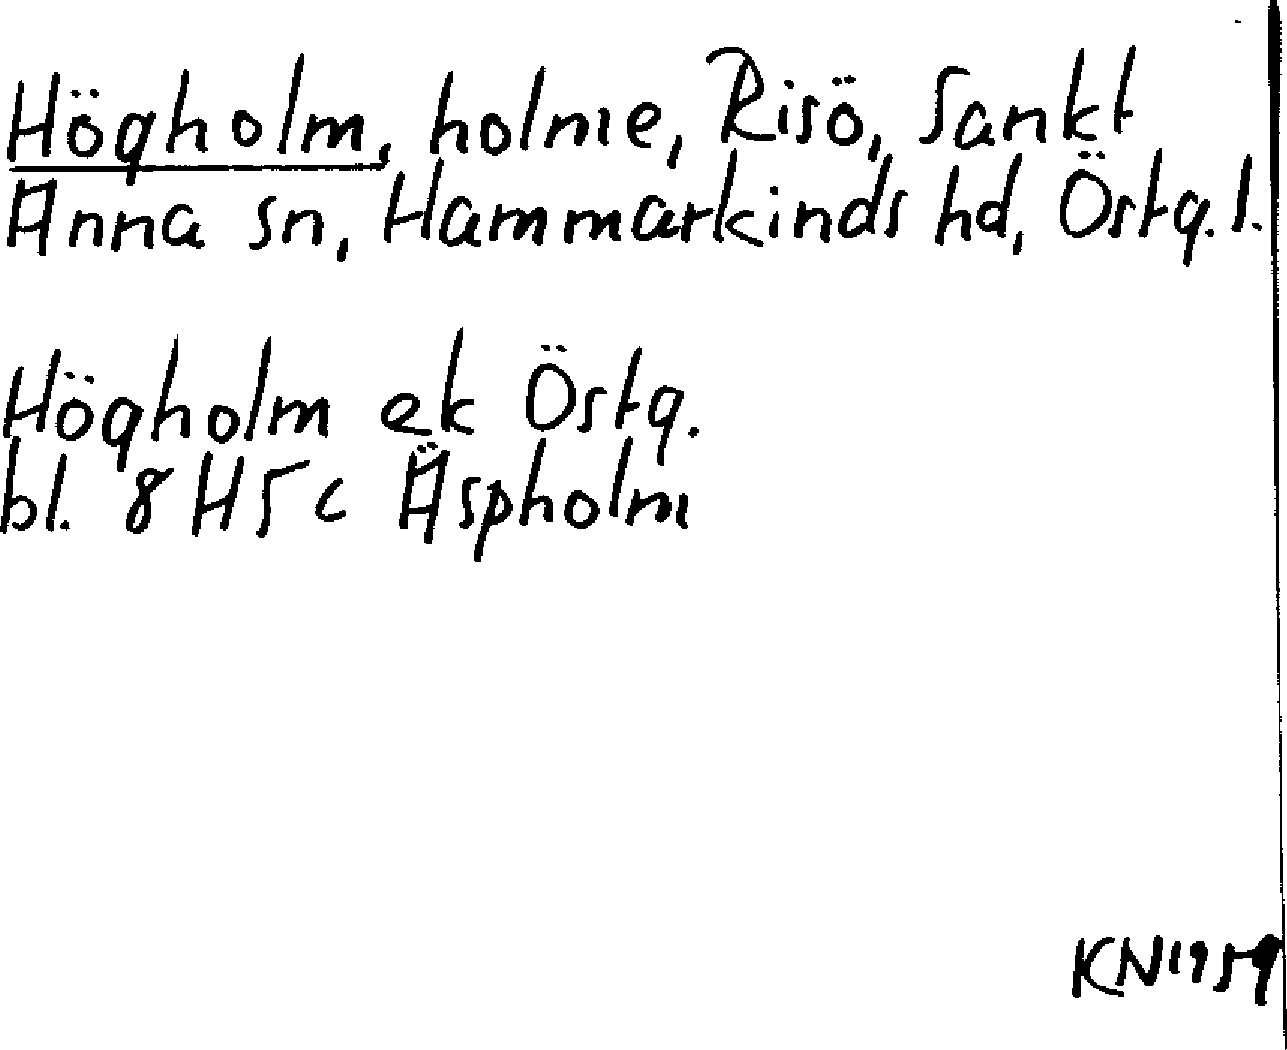 Högholm, holme, Risö, Sankt
Anna sn, Hammarkinds hd, Östg. l.
Högholm ek Östg.
bl. 8 H 5 c Äspholm
KN 1959